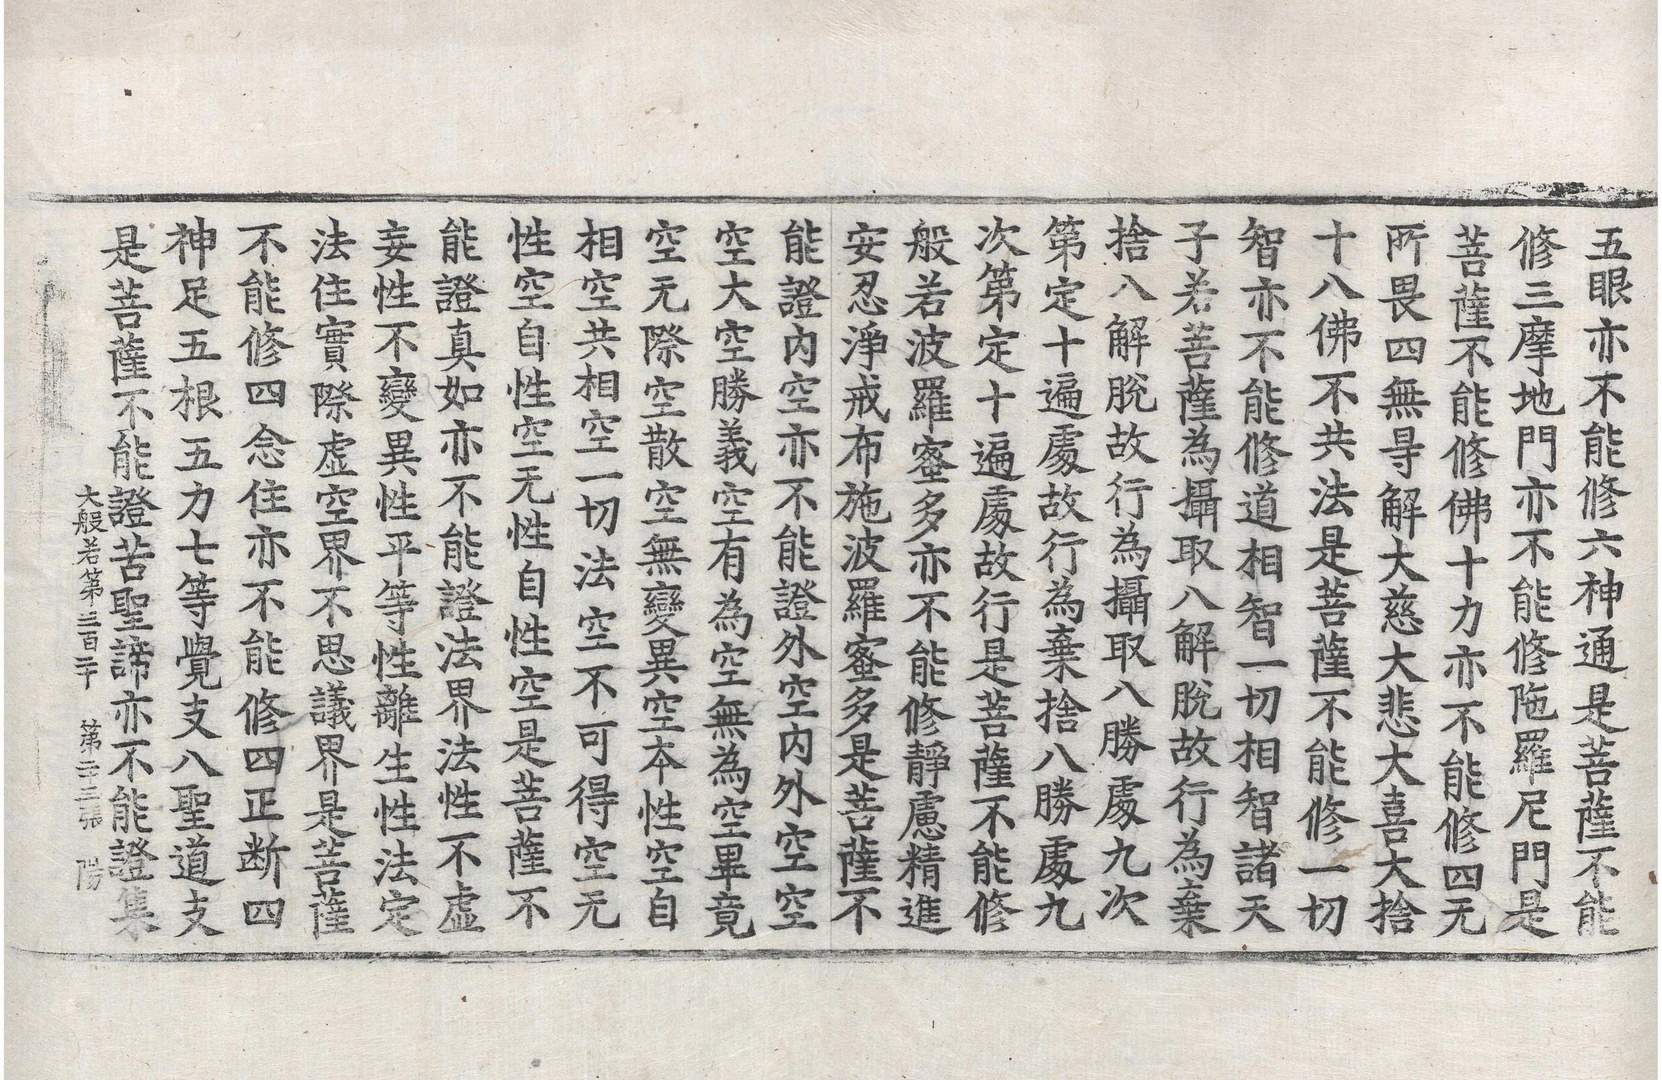 五眼亦不能修六神通是菩薩不能
修三摩地門亦不能修陁羅尼門是
菩薩不能修佛十力亦不能修四无
所畏四無㝵解大慈大悲大喜大捨
十八佛不共法是菩薩不能修一切
智亦不能修道相智一切相智諸天
子若菩薩為攝取八解脫故行為棄
捨八解脫故行為攝取八勝處九次
第定十遍處故行為棄捨八勝處九
次第定十遍處故行是菩薩不能修
般若波羅蜜多亦不能修靜慮精進
安忍淨戒布施波羅蜜多是菩薩不
能證內空亦不能證外空內外空空
空大空勝義空有為空無為空畢竟
空无際空散空無變異空本性空自
相空共相空一切法空不可得空无
性空自性空无性自性空是菩薩不
能證真如亦不能證法界法性不虛
妄性不變異性平等性離生性法定
法住實際虛空界不思議界是菩薩
不能修四念住亦不能修四正断四
神足五根五力七等覺支八聖道支
是菩薩不能證苦聖諦亦不能證集
大般若第三百二十 第二十三張 陽